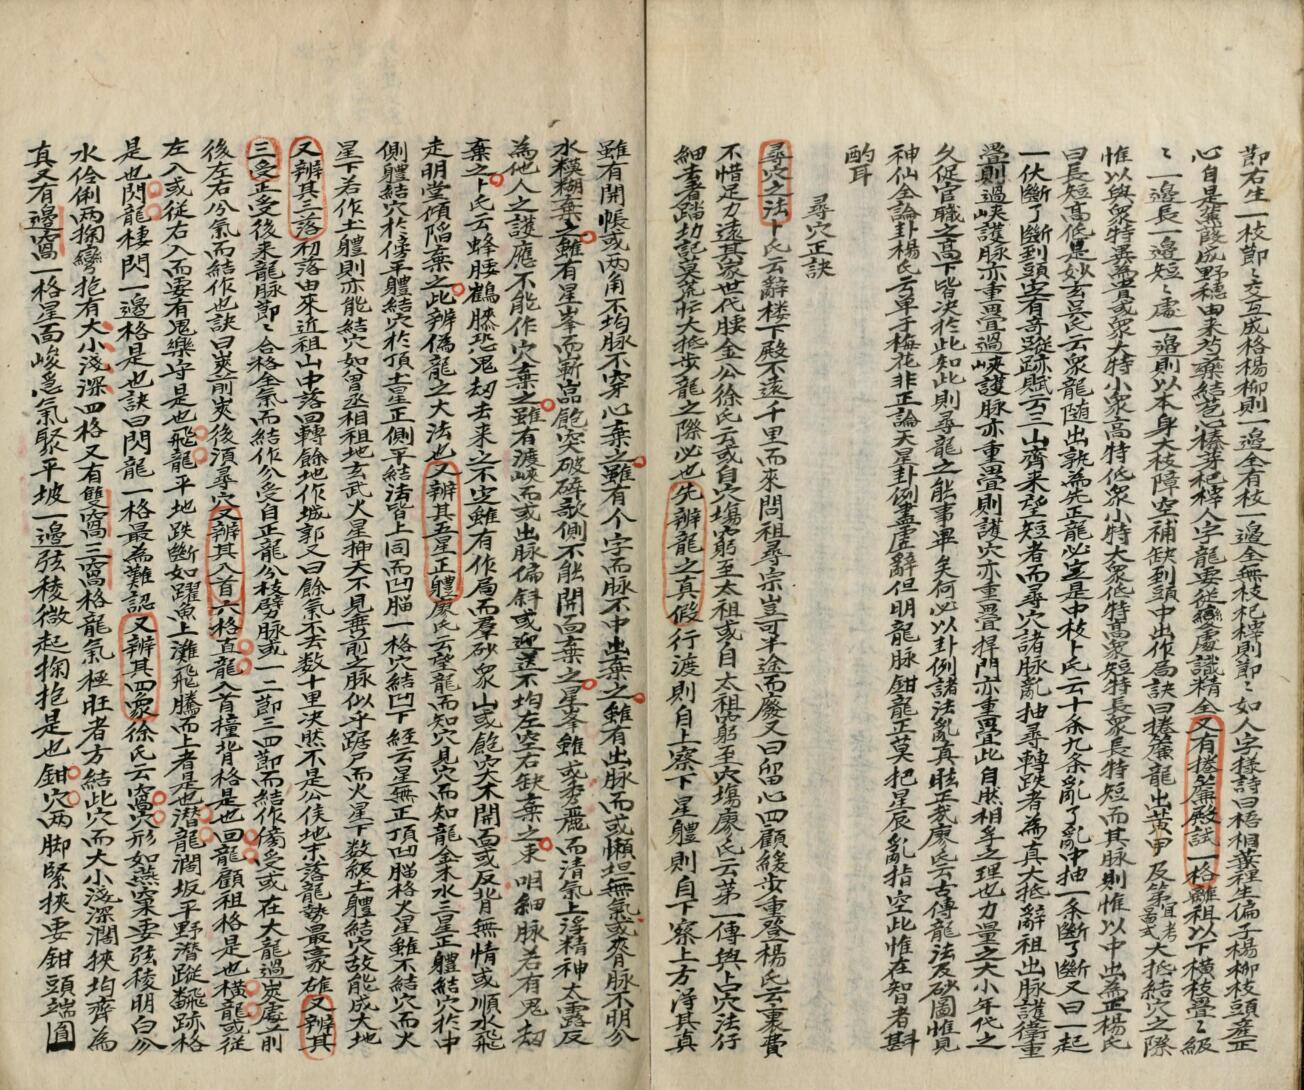 節右生一枝節〻交互成格楊柳則一邊全有枝一邊全無枝杞梓則節〻如人字樣詩曰梧桐葉種生偏子楊柳枝頭産正
心自是蒹葭成野穗由来芍藥結苞心榛芽杞梓人字龍要從處識精全又有捲簾殿試一格雖祖以下橫枝疊〻級
〻一邊長一邊短〻處一邊則以本身大枝障空補缺到頭中出作局訣曰捲簾龍出黄甲及第宜考盖式大抵結穴之際
惟以與衆特異為貴或衆大特小衆高特低衆小特大衆低特高衆短特長衆長特短而其脉則惟以中出為正楊氏
曰長短高低是妙玄吳氏云衆龍随出孰為先正龍必定是中枝卜氏云十条九条亂了亂中抽一条斷了斷又曰一起
一伏斷了斷到頭定有奇蹤跡賦云三山齊来望短者而尋穴諸脉亂抽尋轉跌者為真大抵辭祖出脉護衛重
疊則過峽護脉亦重疊過峽護脉亦重疊則護穴亦重疊捍門亦重疊此自然相孚之理也力量之大小年代之
久促官職之高下皆决於此知此則尋龍之能事畢矣何必以卦例諸法亂真眩正哉廖氏云古傳龍法及砂圖惟見
神仙全論卦楊氏云單于梅花非正論天星卦例盡虚辭但明龍脉鉗龍正莫把星辰亂指空此惟在智者斟
酌耳
尋穴正訣
尋穴之法卜氏云辭楼下殿不遠千里而來問祖尋宗豈可半途而廢又曰留心四顧緩步重登楊氏云裹費
不惜足力遠其家世代腰金公徐氏云或自穴塲窮至太祖或自太祖窮至穴塲廖氏云第一傳與占穴法行
細去者踏切記莫荒忙大抵步龍之際必也先辨龍之真假行渡則自上察下星體則自下察上方淂其真
雖有開帳或两角不均脉不穿心棄之雖有个字而脉不中出棄之雖有出脉而或懶坦無氣或夾脊脉不明分
水模糊棄之雖有星峯而嶄岩飽突破碎歌側不能開面棄之星峯雖或秀麗而清氣上浮精神太露反
為他人之護應不能作穴棄之雖有渡峡而或出脉偏斜或迎送不均左空右缺棄之束明細脉若有鬼刼
棄之卜氏云蜂腰鶴膝恐鬼刼去来之不定雖有作局而羣砂衆山或飽突不開面或反背無情或順水飛
走明堂傾陷棄之此辨偽龍之大法也又辨其五星正體廖氏云望龍而知穴見穴而知龍金木水三星正體結穴於中
側體結穴於傍平體結穴於頂土星正側平結法皆上同而凹脳一格穴結凹下經云星無正頂凹脳格火星雖不結穴而火
星下若作土體則亦能結穴如曾丞相祖地玄武火星揷天不見垂前之脉似乎踞尸而火星下数級土體結穴故能成大地
又辨其三落初落由來近祖山中落回轉餘地作城郭又曰餘氣不去数十里决然不是公侯地末落龍勢最豪雄又辨其
三受正受後来龍脉節〻合格全氣而結作分受自正龍分枝劈脉或一二節三四節而結作傍受或在大龍過峽處前
後左右分氣而結作也訣曰峽前峽後須尋穴又辨其入首六格直龍入首撞背格是也回龍顧祖格是也橫龍或從
左入或從右入而要有鬼樂守是也飛龍平地跌斷如躍魚上灘飛騰而上者是也潜龍濶坂平野潜蹤飜跡格
是也閃龍棲閃一邊格是也訣曰閃龍一格最為難認又辨其四象徐氏云窩穴形如燕窠要弦稜明白分
水伶俐两掬彎抱有大小淺深四格又有雙窩三窩格龍氣極旺者方結此穴而大小淺深濶狹均齊為
真又有邊窩一格星面峻急氣聚平坡一邊弦稜微起掬抱是也鉗穴两脚緊挾要鉗頭端圓